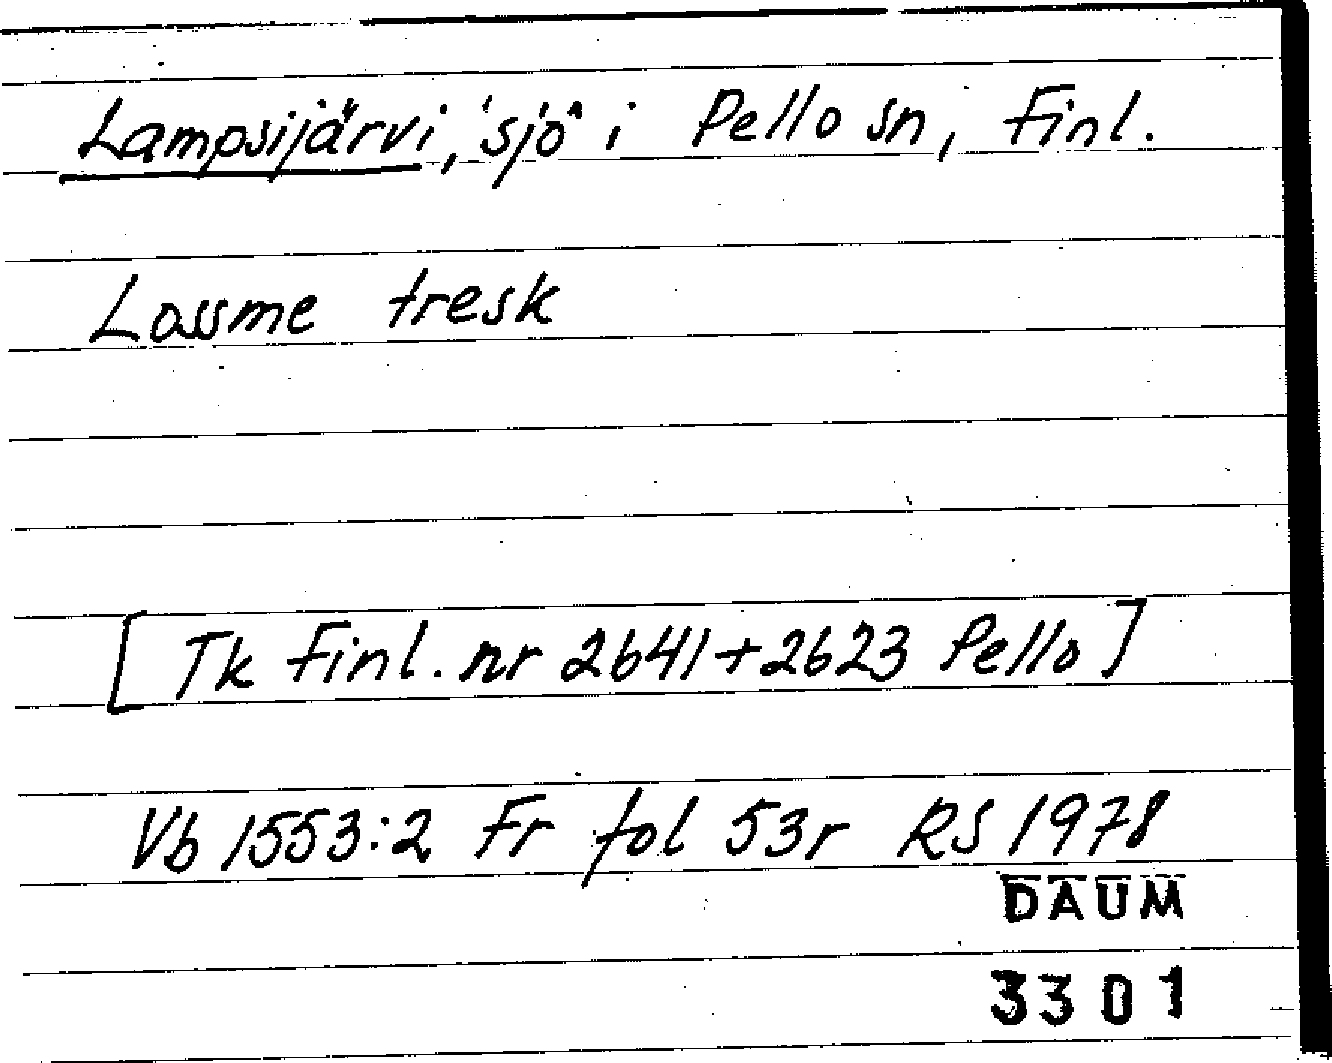 Lampsijärvi, sjö i Pello sn, Finl.
Lassme tresk
[Tk Finl. nr 2641+2623 Pello]
Vb 1553:2 Fr fol 53r RS 1978
DAUM
3301